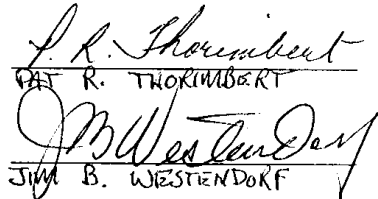 P. R. Thorimbert
PAT R. THORIMBERT
J B Westendorf
JIM B. WESTENDORF